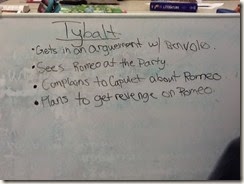 Tybalt
• Gets in an arguement w/ Benvolio.
• Sees Romeo at the Party.
• Complains to Capulet about Romeo
• Plans to get revenge on Romeo.